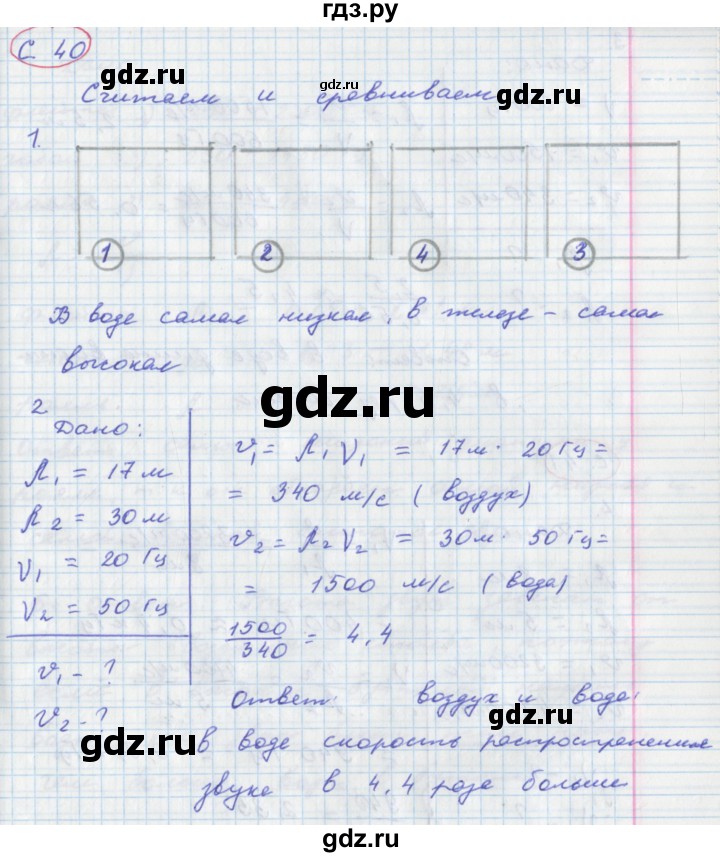 гдз.ру
С 40
gdz.ru
gdz.ru
gdz.ru
Считаем и сравниваем
1.
1 2 4 3
gdz.ru
gdz.ru
В воде самая низкая, в железе – самая
высокая
gdz.ru
2
Дано:
λ₁ = 17 м
λ₂ = 30 м
ν₁ = 20 Гц
ν₂ = 50 Гц
v₁ - ?
v₂ - ?
v₁ = λ₁ν₁ = 17м · 20 Гц =
= 340 м/с (воздух)
v₂ = λ₂ν₂ = 30м · 50 Гц =
= 1500 м/с (вода)
1500/340 = 4,4
gdz.ru
gdz.ru
gdz.ru
Ответ: воздух и вода;
в воде скорость распространения
звука в 4,4 раза больше
gdz.ru
gdz.ru
gdz.ru
гдз.ру